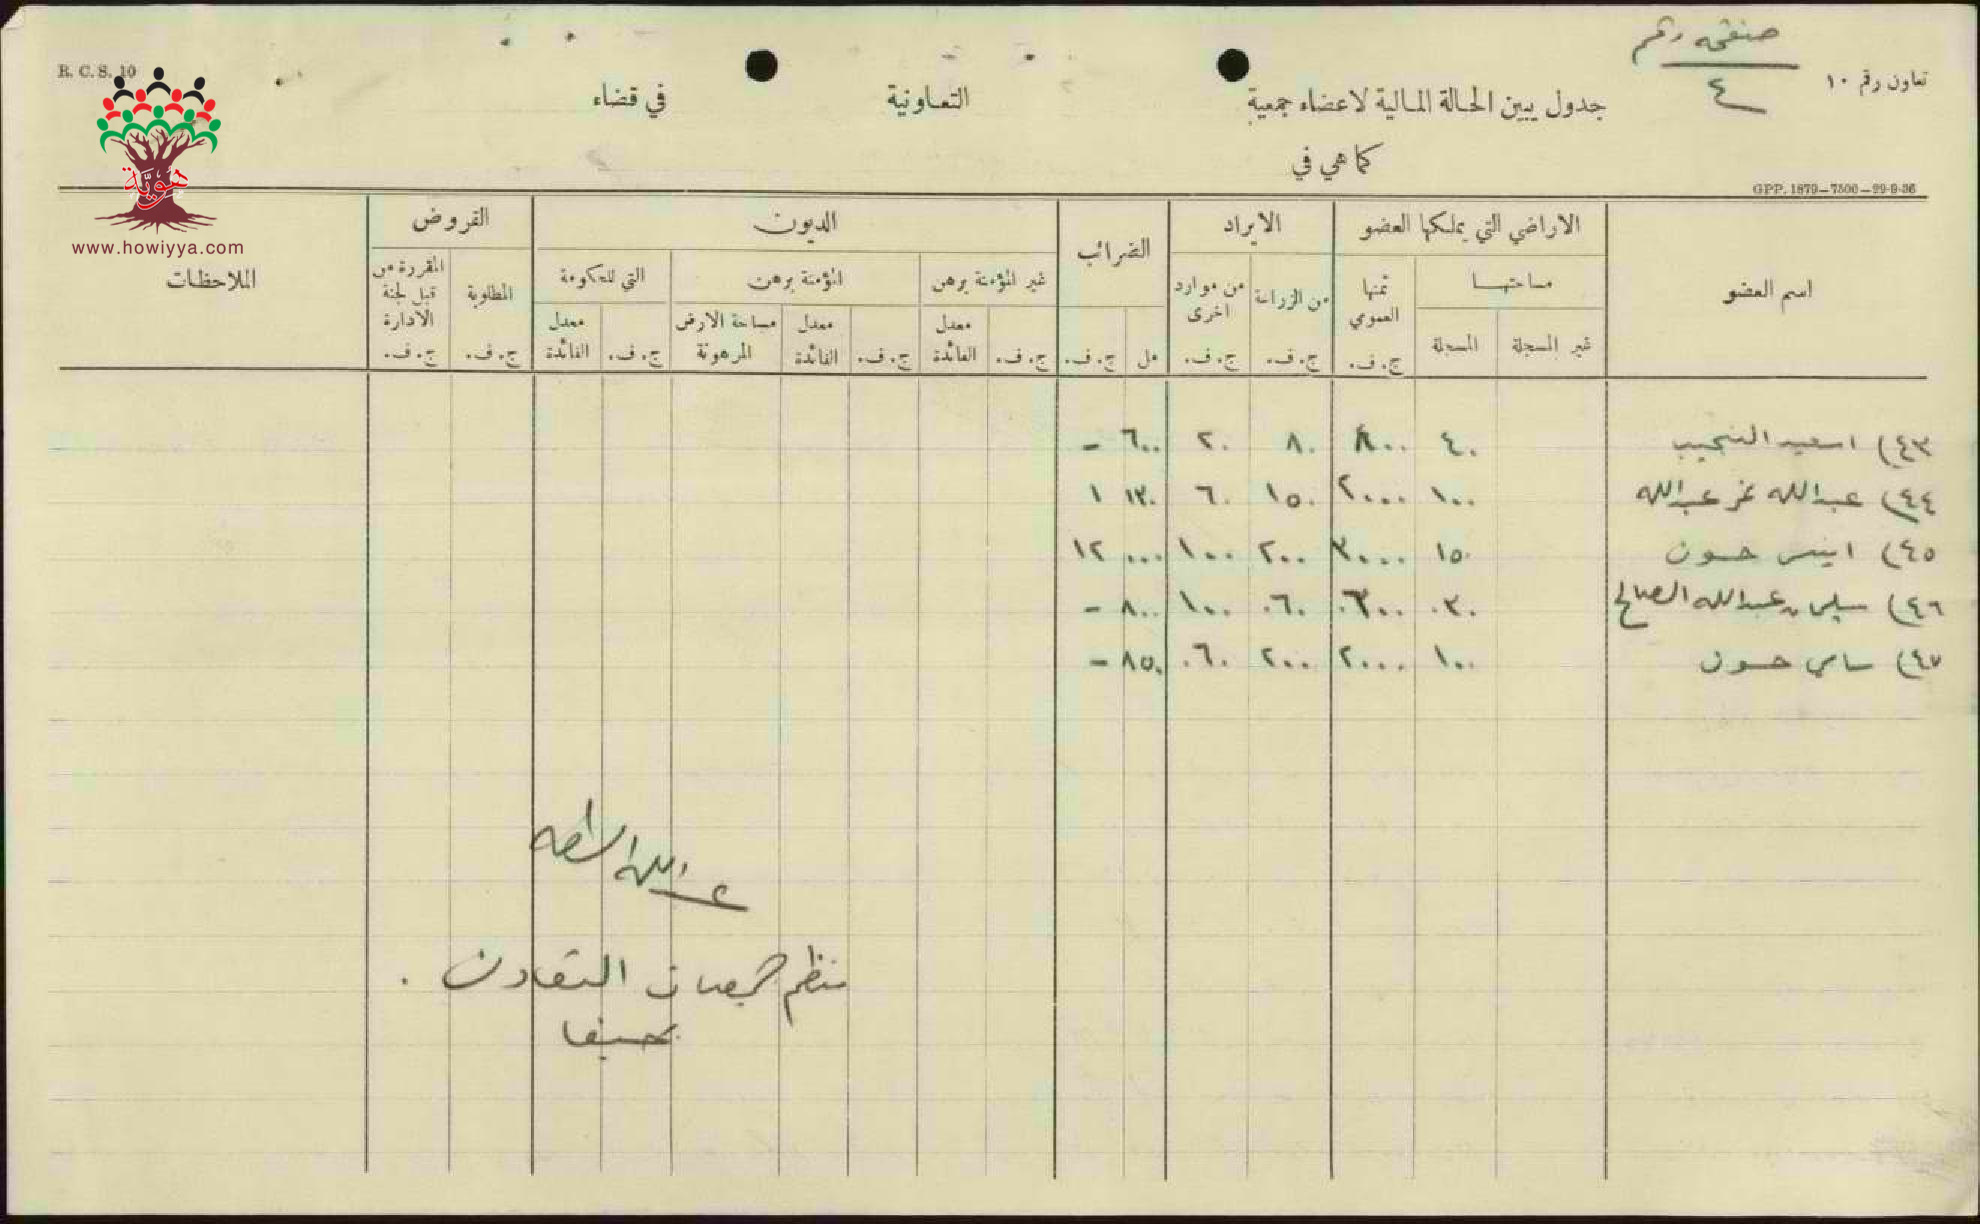 صفحة رقم
٤
تعاون رقم ١٠
R. C. S. 10
جدول يبين الحالة المالية لاعضاء جمعية التعاونية في قضاء
كما هي في
GPP. 1879—7500—29-9-36
هوية
www.howiyya.com
اسم العضو الاراضي التي يملكها العضو الايراد الضرائب الديون القروض الملاحظات
مساحتها ثمنها العمومي من الزراعة من موارد اخرى غير المؤمنة برهن المؤمنة برهن التي للحكومة المطلوبة المقررة من قبل لجنة الادارة
غير المسجلة المسجلة ج. ف. ج. ف. ج. ف. مل ج. ف. ج. ف. معدل الفائدة ج. ف. معدل الفائدة مساحة الارض المرهونة ج. ف. معدل الفائدة ج. ف. ج. ف.
٤٣) اسعيد النجيب ٤٠ ٨٠٠ ٨٠ ٢٠ ٦٠٠ -
٤٤) عبدالله نمر عبدالله ١٠٠ ٢٠٠٠ ١٥٠ ٦٠ ١٣٠ ١
٤٥) انيس حسون ١٥٠ ٣٠٠٠ ٢٠٠ ١٠٠ ٠٠٠ ١٢
٤٦) سليمان عبدالله الصالح ٣٠ ٦٠٠ ٦٠ ١٠٠ ٨٠٠ -
٤٧) سامي حسون ١٠٠ ٢٠٠٠ ٢٠٠ ٦٠ ٨٥٠ -
عبدالله
منظم جمعيات التعاون .
بحيفا